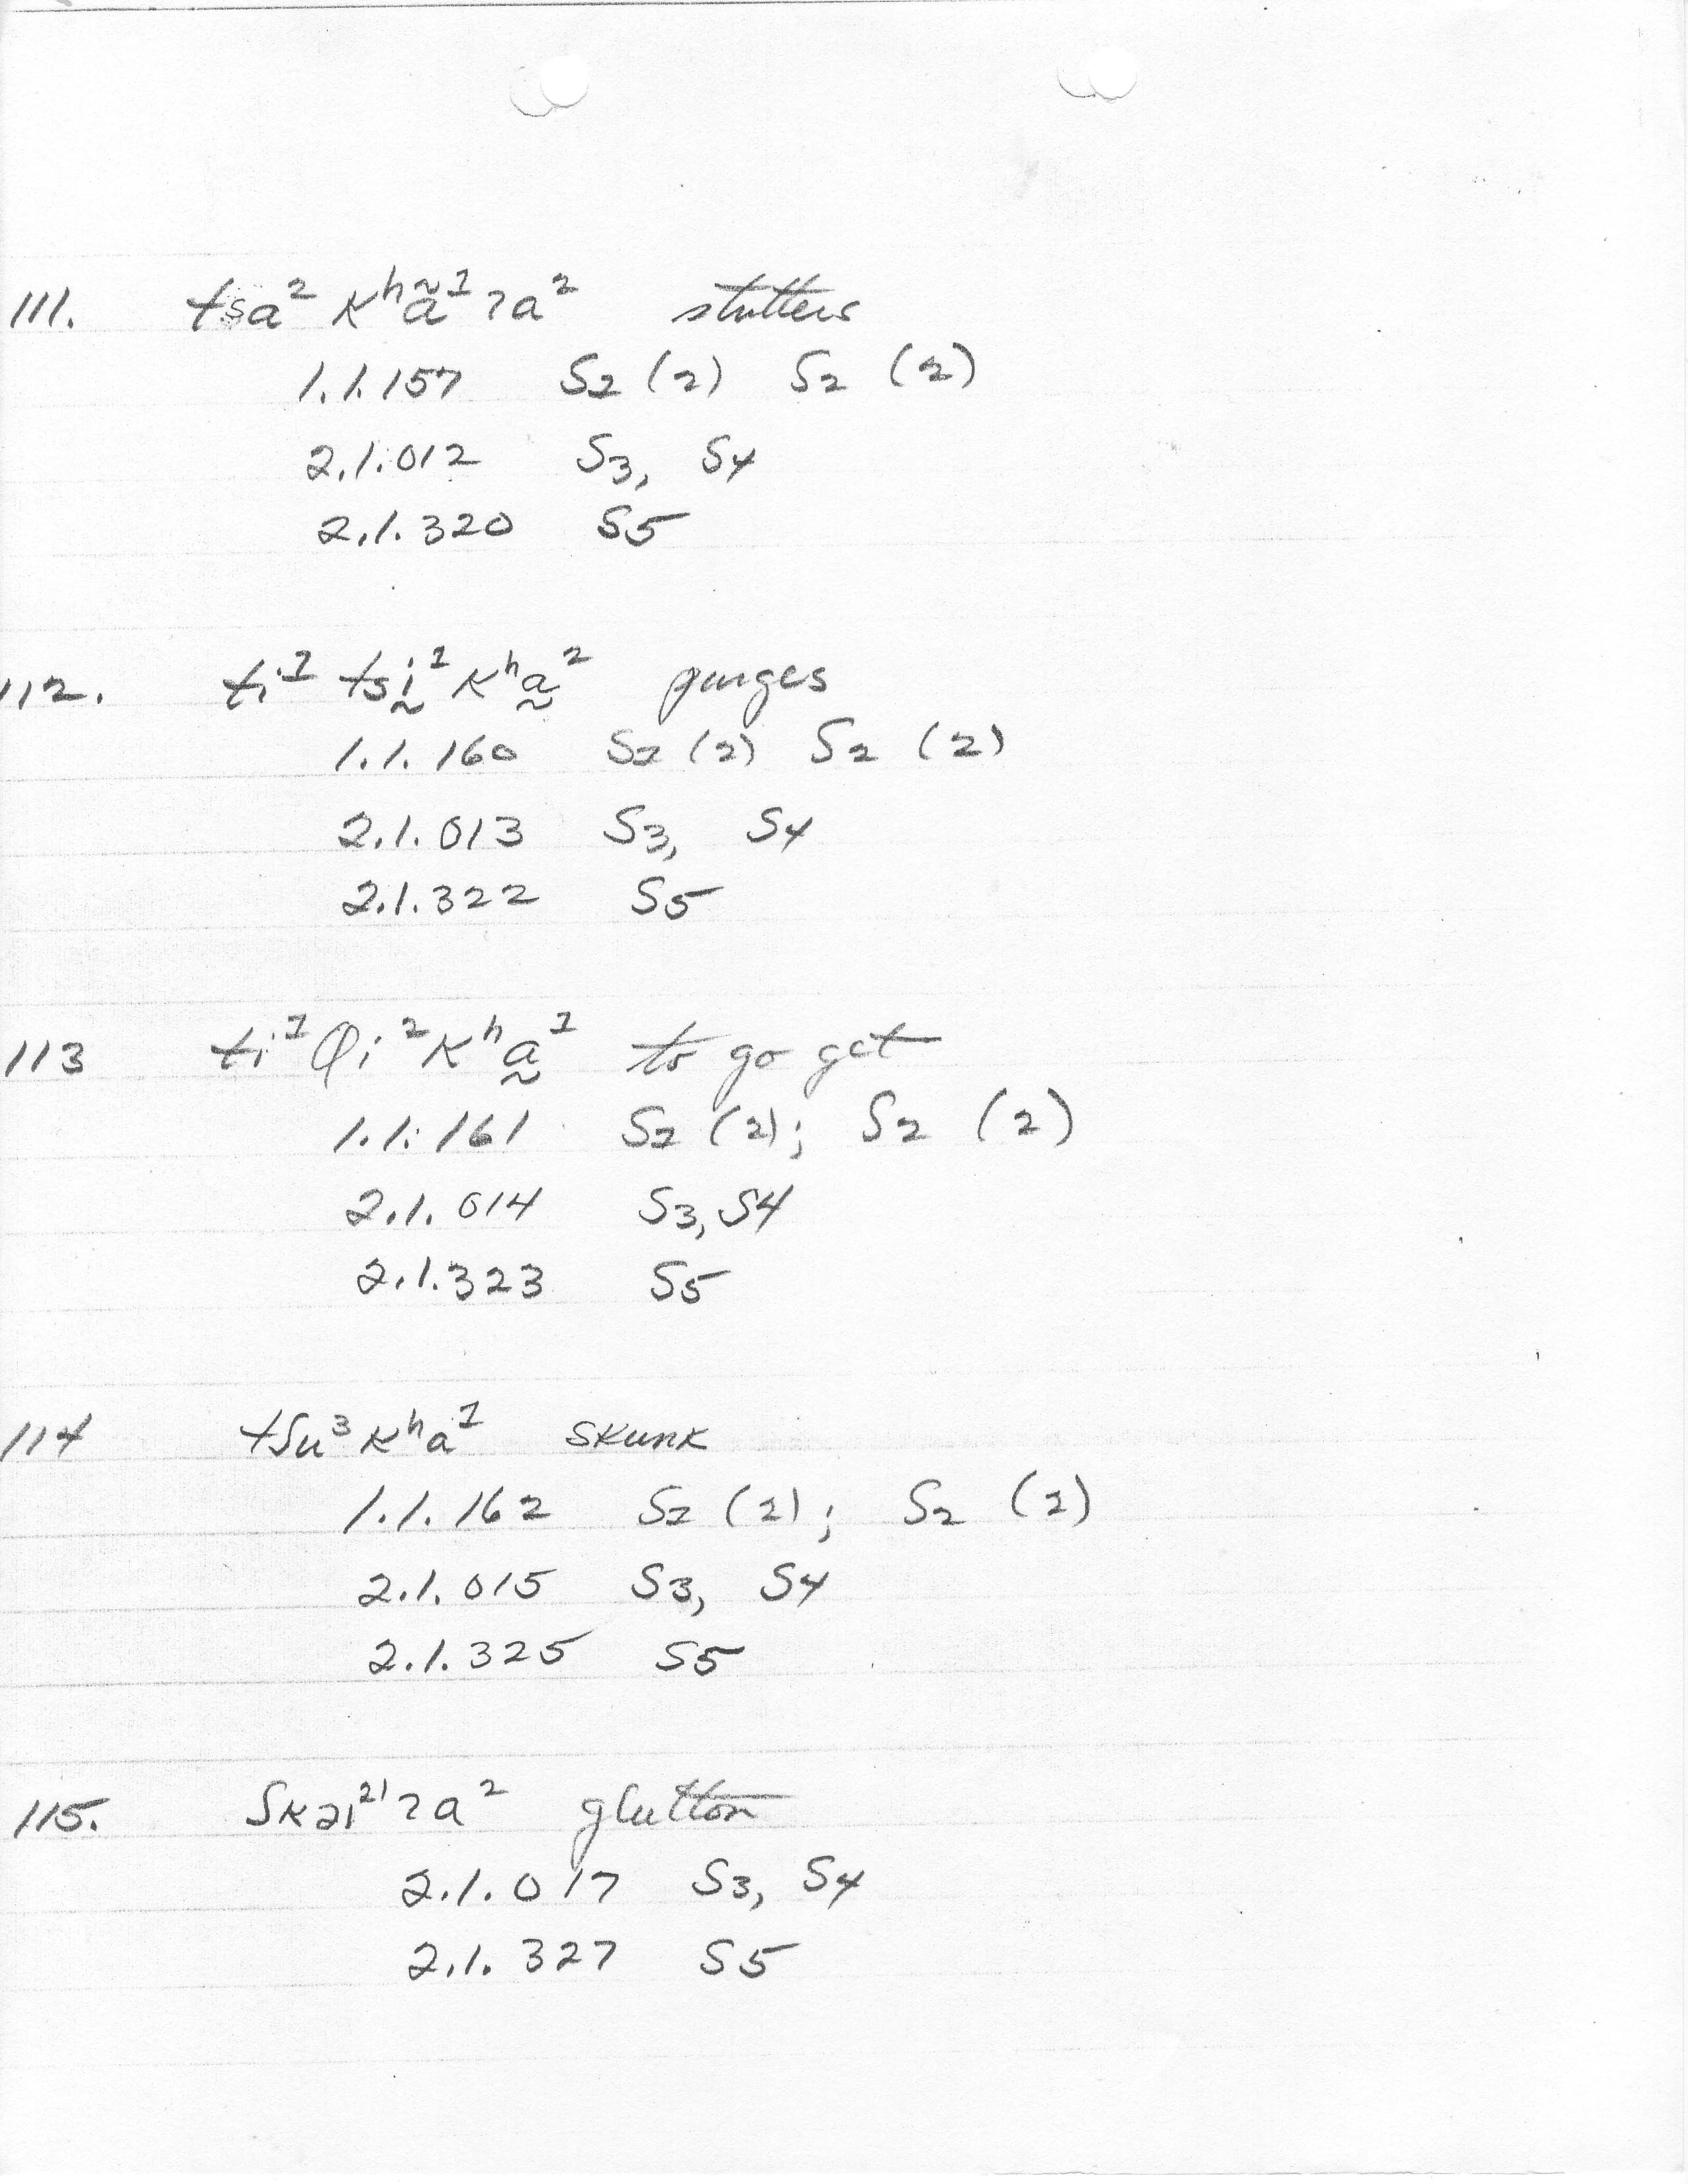 111. tsa² kʰã¹ʔa² stutters
1.1.157 S2 (2) S2 (2)
2.1.012 S3, S4
2.1.320 S5
112. ti¹ tsḭ¹kʰa̰² purges
1.1.160 S2 (2) S2 (2)
2.1.013 S3, S4
2.1.322 S5
113 ti¹ɸi²kʰa̰¹ to go get
1.1.161 S2 (2); S2 (2)
2.1.014 S3, S4
2.1.323 S5
114 tʃu³kʰa¹ skunk
1.1.162 S2 (2); S2 (2)
2.1.015 S3, S4
2.1.325 S5
115. ʃkai²¹ʔa² glutton
2.1.017 S3, S4
2.1.327 S5